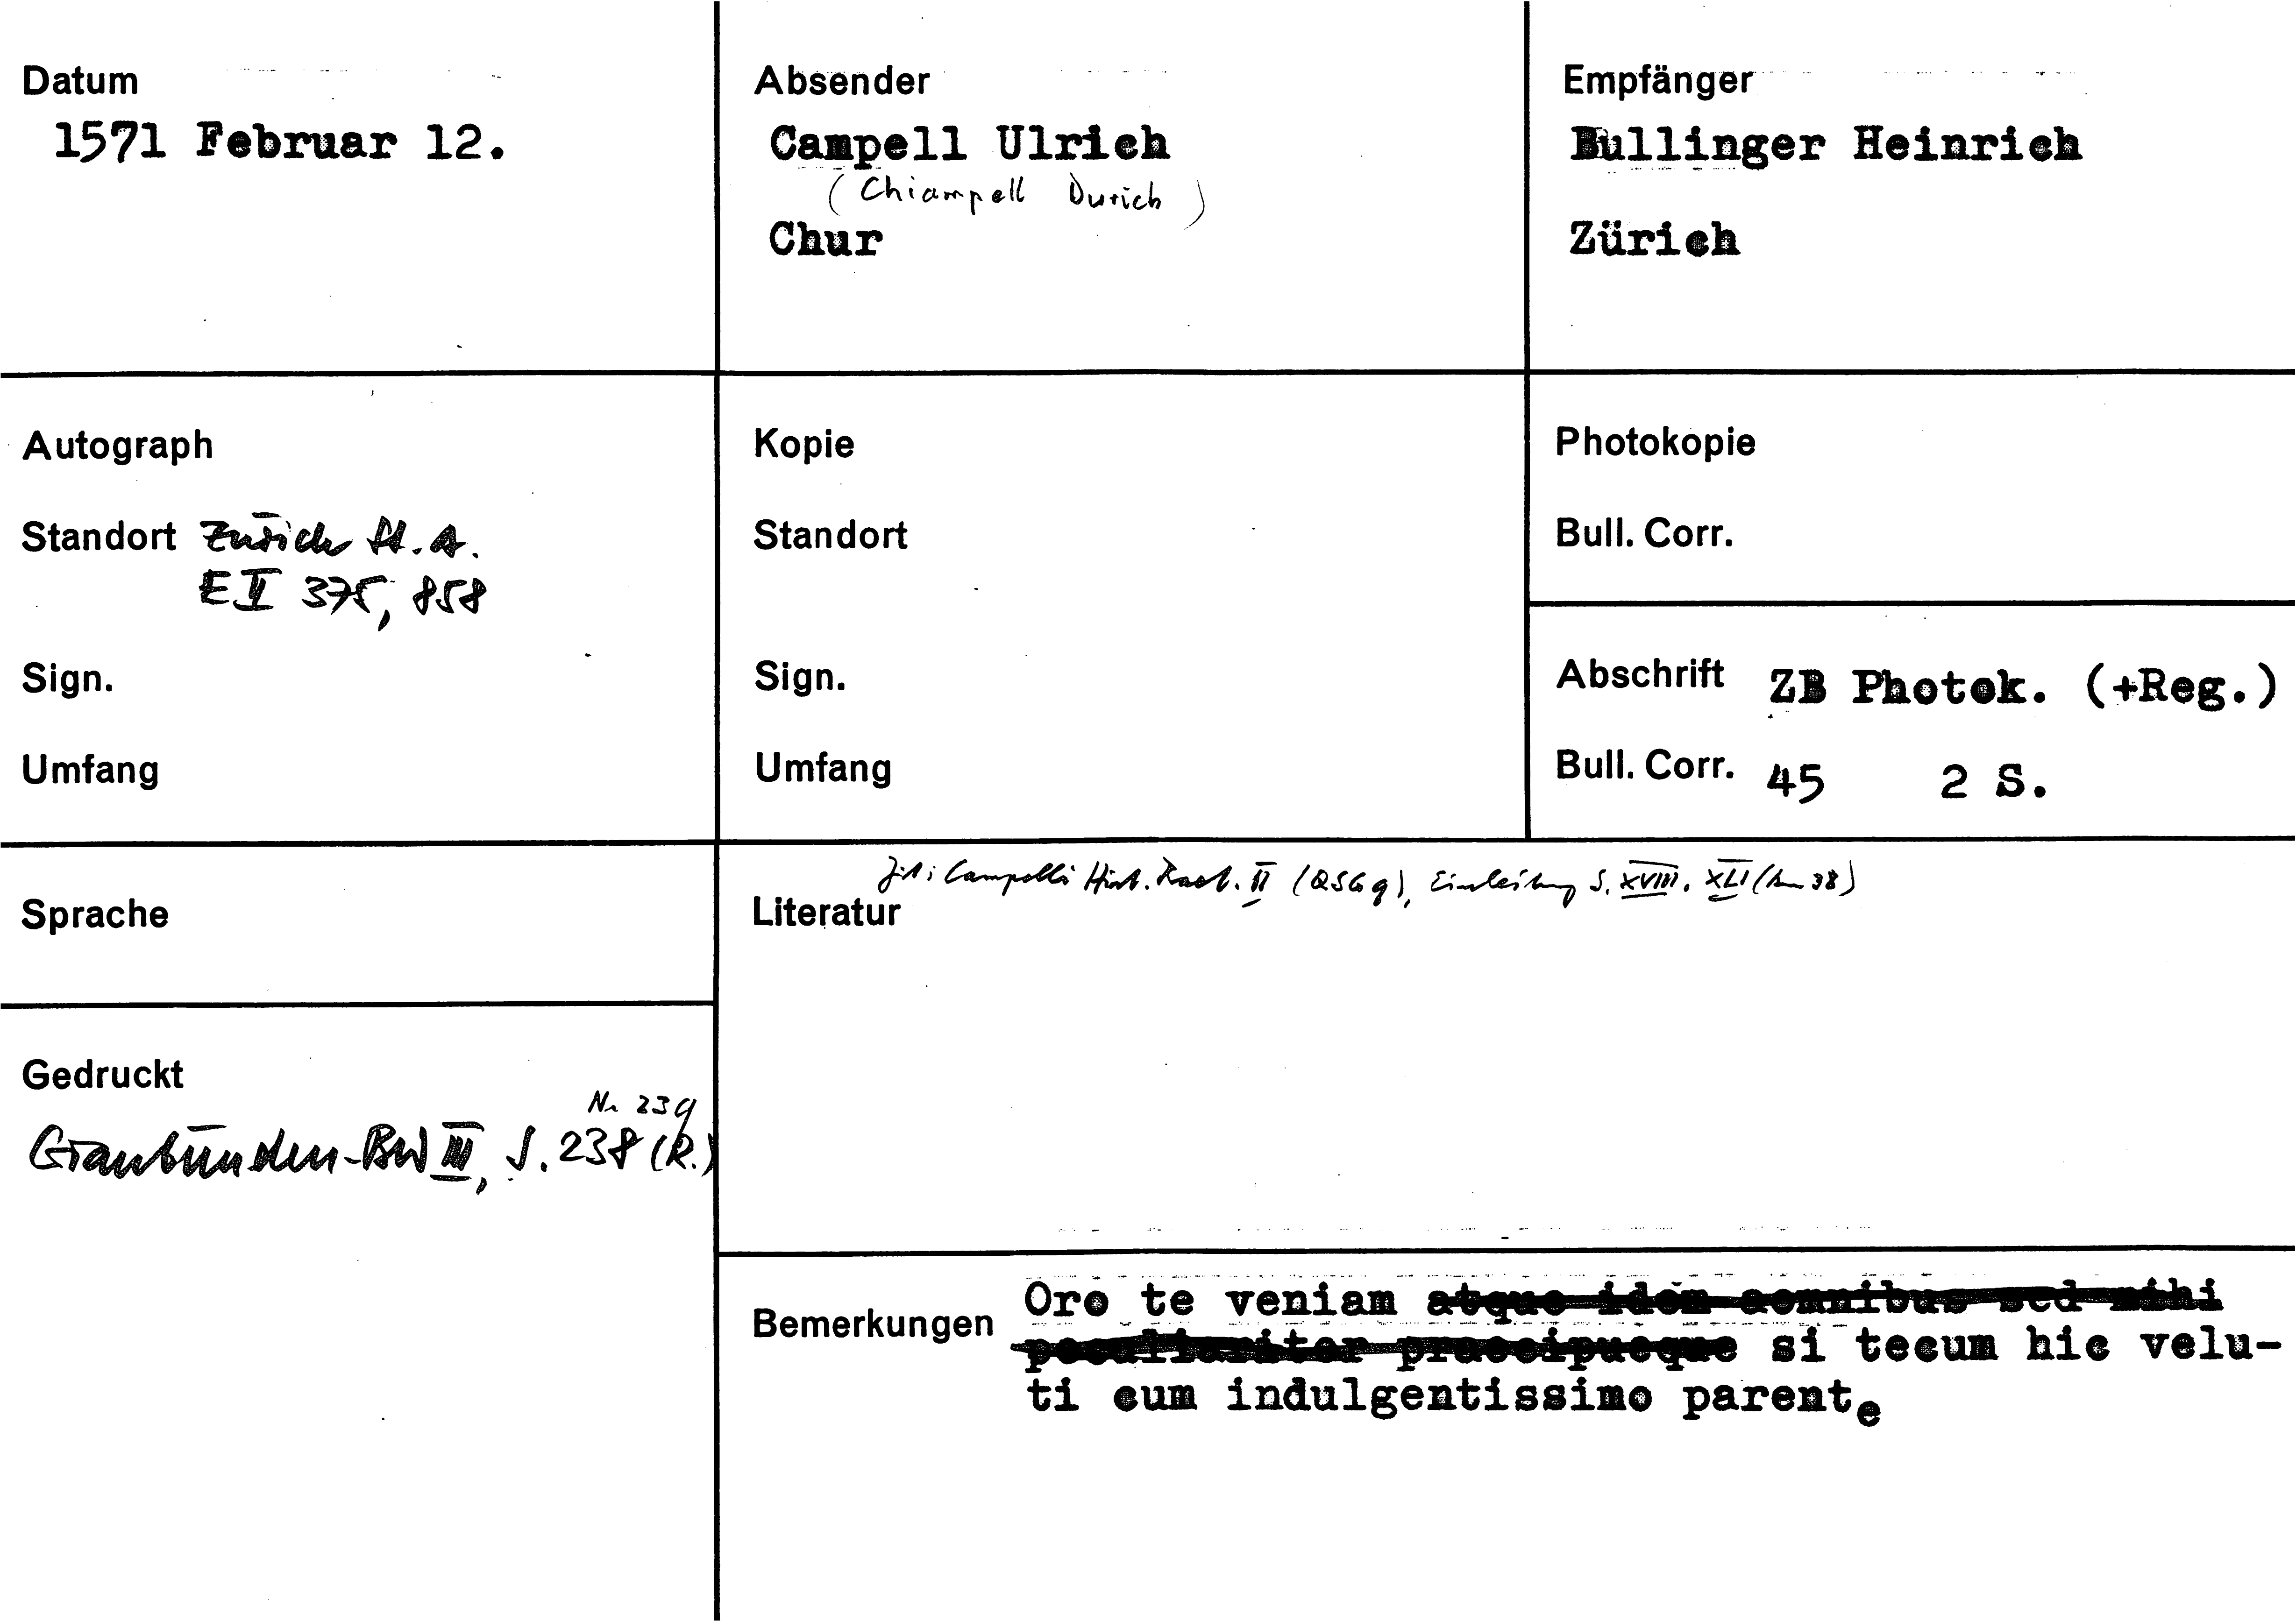 Datum
1571 Februar 12.
Absender
Campell Ulrich
(Chiampell Durich)
Chur
Empfänger
Bullinger Heinrich
Zürich
Autograph
Standort Zürich St.A.
E II 375, 858
Sign.
Umfang
Kopie
Standort
Sign.
Umfang
Photokopie
Bull. Corr.
Abschrift ZB Photok. (+Reg.)
Bull. Corr. 45 2 S.
Sprache
Gedruckt
Nr 239
Graubünden-BW III, S. 238 (R.)
Zit: Campelli Hist. Raet. II (QSG 9), Einleitung S. XVIII. XLI (Anm 38)
Literatur
Bemerkungen
Oro te veniam atque idem aomnibus sed mihi
peculiariter praecipueque si tecum hic velu-
ti cum indulgentissimo parente